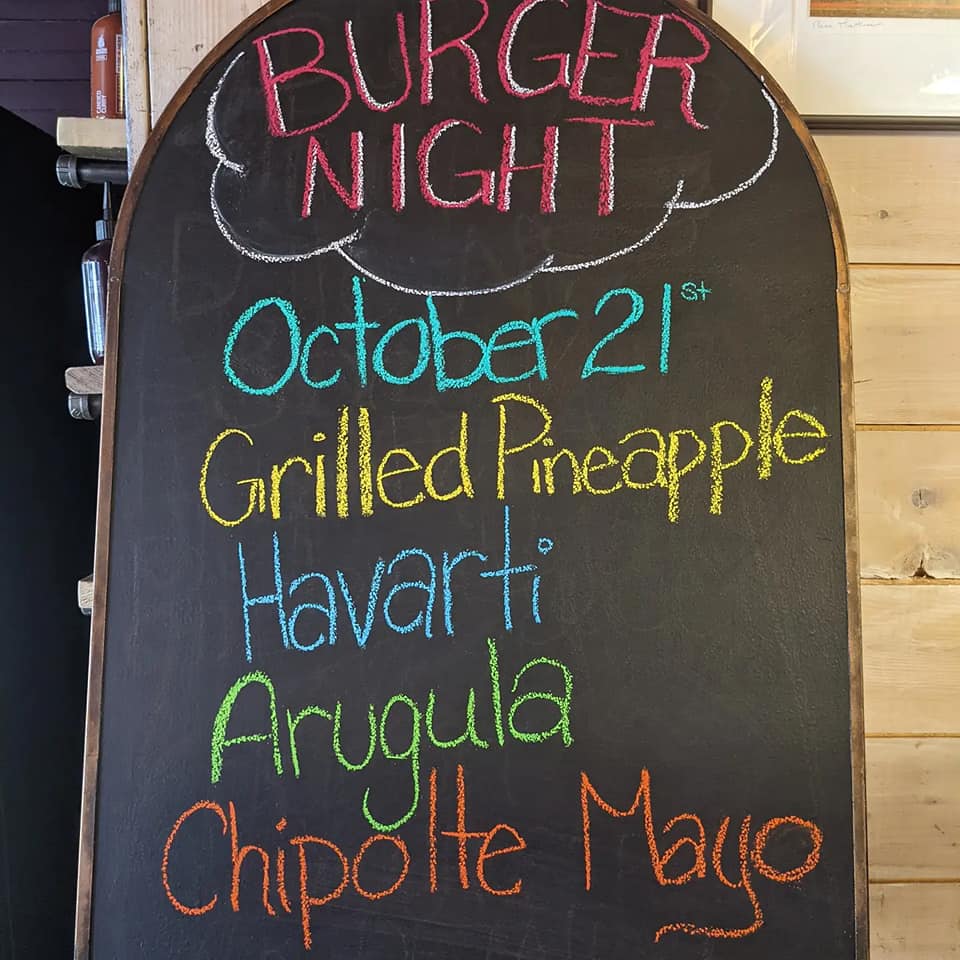 BURGER
NIGHT
October 21st
Grilled Pineapple
Havarti
Arugula
Chipolte Mayo